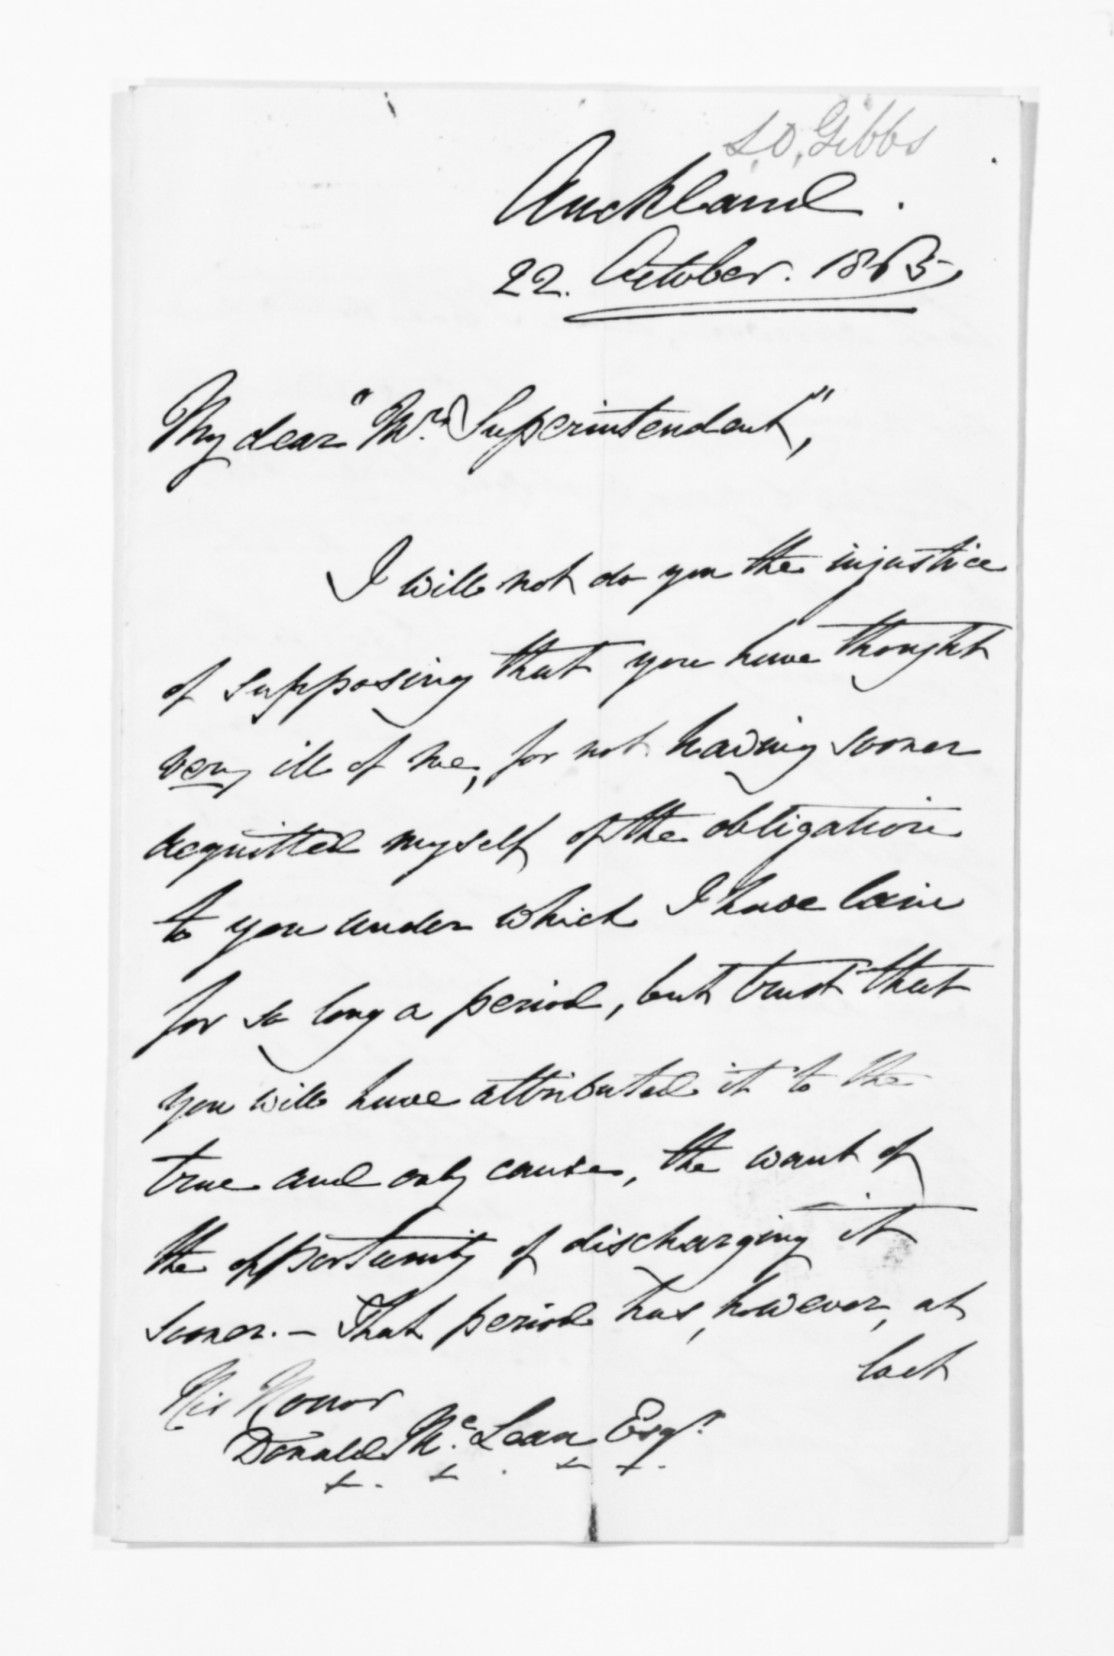 S.O. Gibbs
Auckland.
22. October. 1865,
My dear "Mr. Superintendent",
I will not do you the injustice
of supposing that you have thought
very ill of me, for not having sooner
acquitted myself of the obligation
to you under which I have lain
for so long a period, but trust that
you will have attributed it to the
true and only cause, the want of
the opportunity of discharging it
sooner. - That period has, however, at
last
His Honor
Donald McLean Esqr.